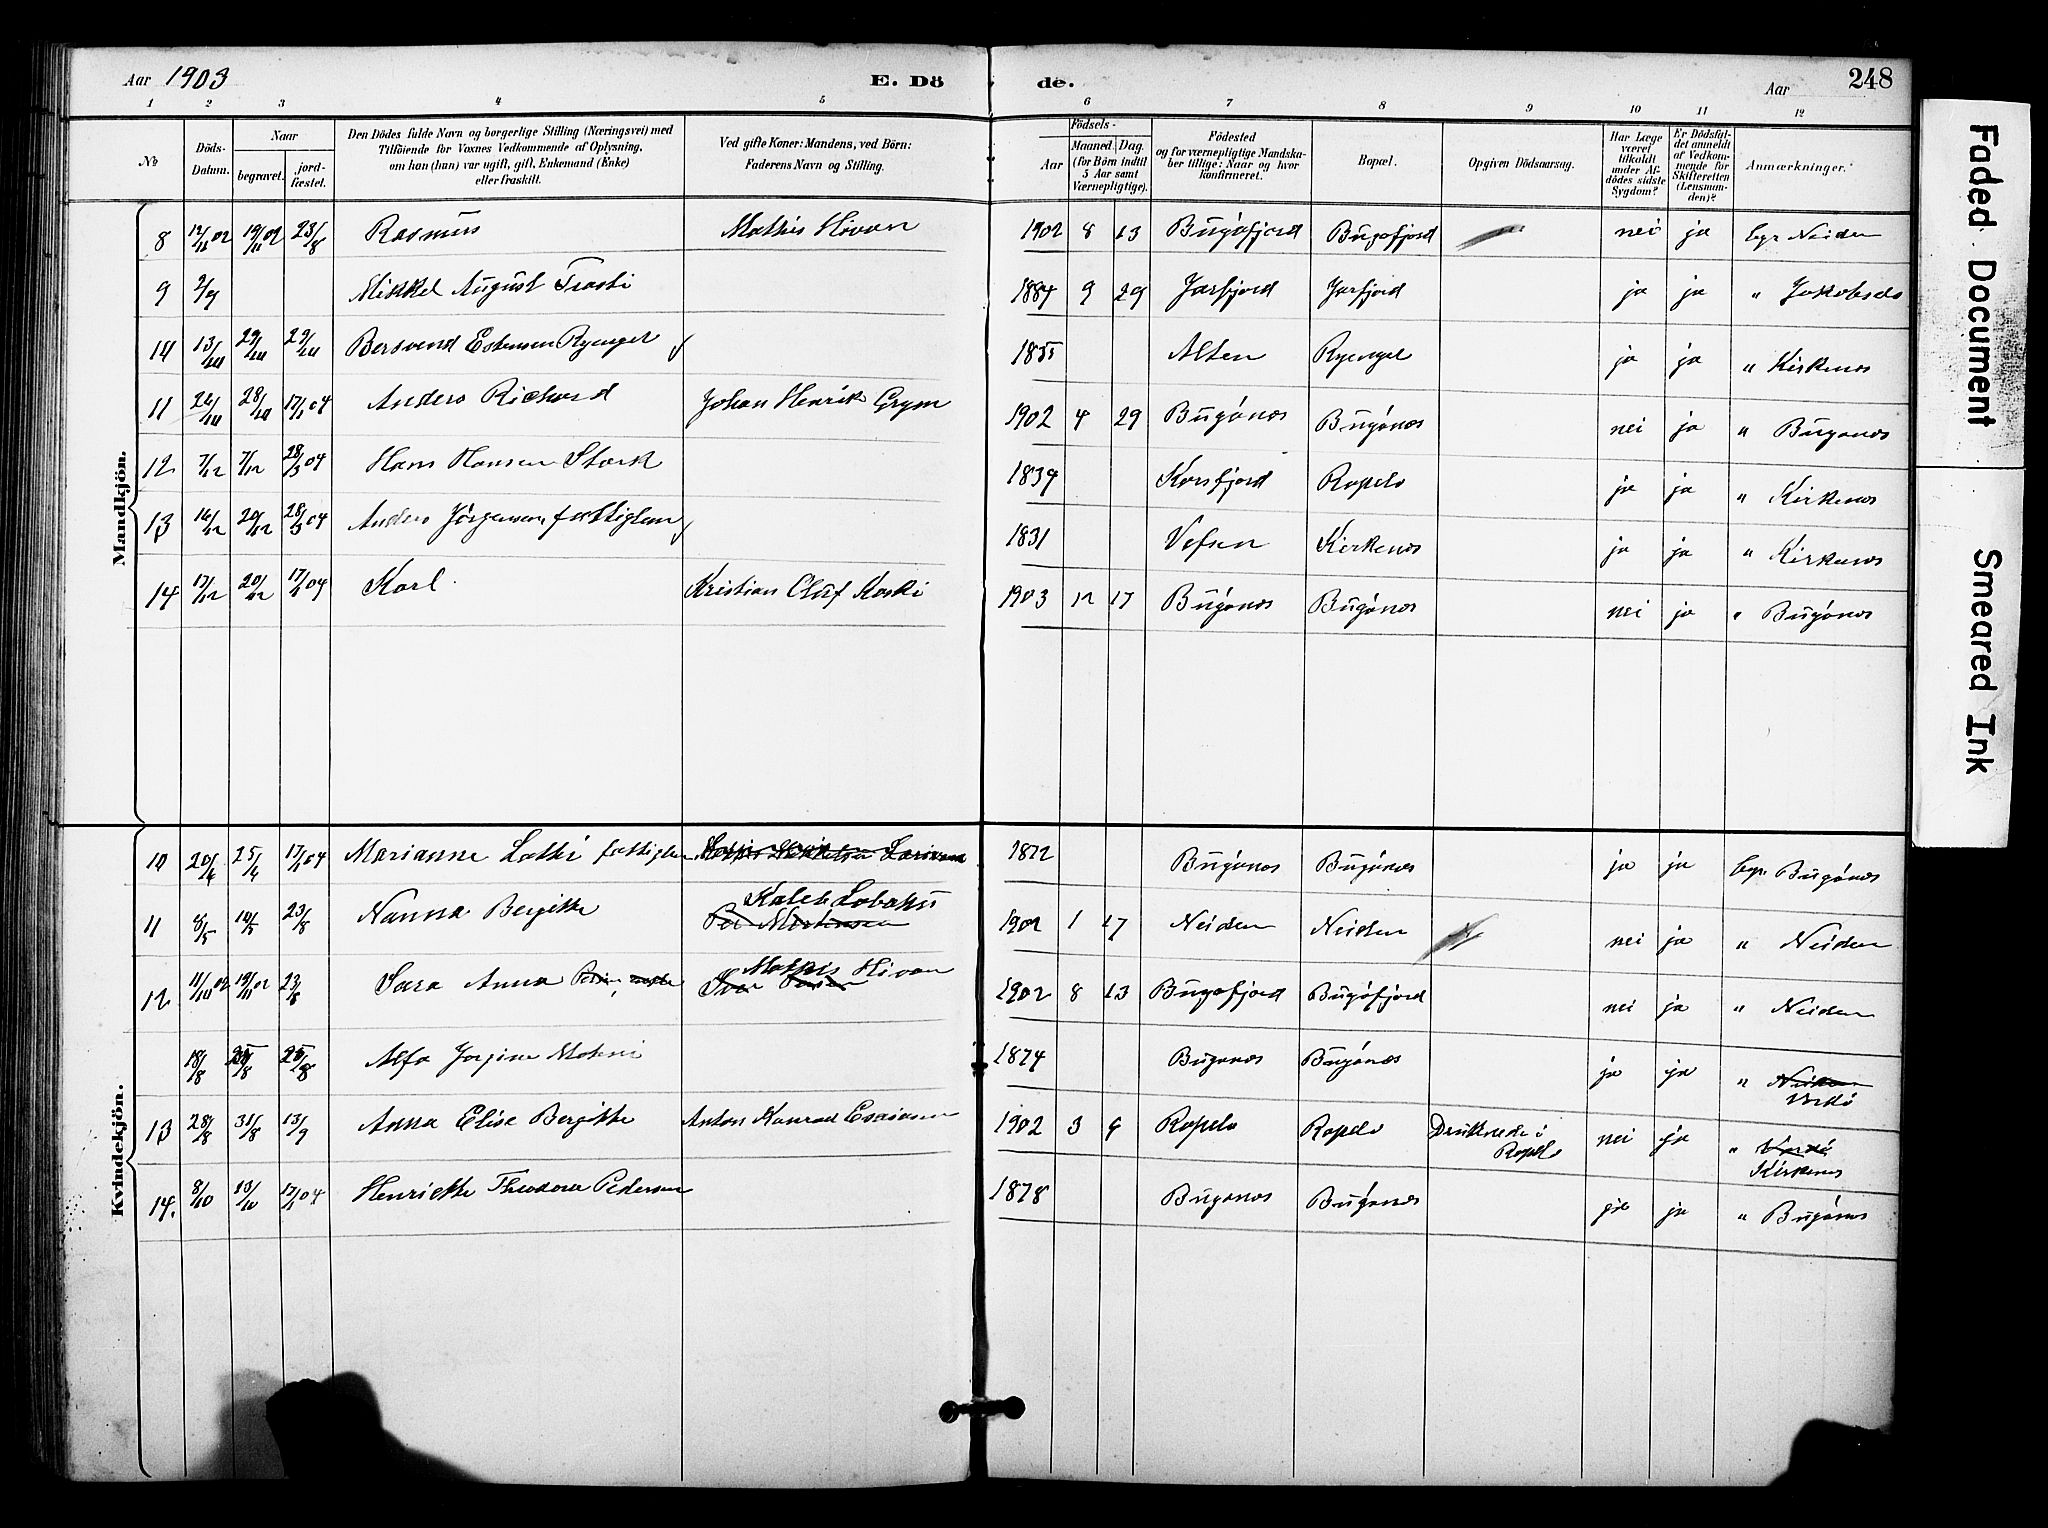 Aar 1903 E. Dö de. Aar 248
1 2 3 4 5 6 7 8 9 10 11 12
No
Döds-Datum.
Naar
begravet.
jord-fæstet.
Den Dödes fulde Navn og borgerlige Stilling (Næringsvei) med
Tilföiende for Voxnes Vedkommende af Oplysning,
om han (hun) var ugift, gift, Enkemand (Enke)
eller fraskilt.
Ved gifte Koner: Mandens, ved Börn:
Faderens Navn og Stilling.
Födsels-
Aar
Maaned. Dag.
(for Börn indtil
5 Aar samt
Værnepligtige).
Födested
og for værnepligtige Mandska-
ber tillige: Naar og hvor
konfirmeret.
Bopæl.
Opgiven Dödsaarsag.
Har Læge
været
tilkaldt
under Af-
dödes sidste
Sygdom?
Er Dödsfal-
det anmeldt
af Vedkom-
mende for
Skifteretten
(Lensman-
den)?
Anmærkninger.
Mandkjön.
8 12/11 02 19/11 02 23/8 Rasmus Mathis Hivan 1902 8 13 Bugöfjord Bugöfjord nei ja begr Neiden
9 2/9 Mikkel August Trasti 1884 9 29 Jarfjord Jarfjord ja ja " Jakobsels
10 13/10 29/10 29/10 Bersvend Estensen Ryeng 1855 Alten Ryenget ja ja " Kirkenes
11 26/10 28/10 17/1 04 Anders Richard Johan Henrik Grym 1902 4 29 Bugönes Bugönes nei ja " Bugönes
12 7/12 7/12 28/3 04 Hans Hansen Stark 1839 Korsfjord Ropelv ja ja " Kirkenes
13 16/12 20/12 28/3 04 Anders Jörgensen, fattiglem 1831 Vefsen Kirkenes ja ja " Kirkenes
14 17/12 20/12 17/1 04 Karl Kristian Oluf Koski 1903 12 17 Bugönes Bugönes nei ja " Bugönes
Kvindekjön.
10 20/4 25/4 17/1 04 Marianne Latki fattiglem 1822 Bugönes Bugönes ja ja begr. Bugönes
11 8/5 14/5 23/8 Nanna Bergitte Kaleb Labahu
Per Mortensen 1902 1 17 Neiden Neiden nei ja " Neiden
12 11/10 02 19/11 02 23/8 Sara Anna Mathis Hivan
Iver 1902 8 13 Bugöfjord Bugöfjord nei ja " Neiden
18/8 25/8 25/8 Alfa Jorgine Mahni 1874 Bugönes Bugönes ja ja " Neiden
Vardö
13 28/8 31/8 13/9 Anna Elise Bergitte Anton Konrad Esaiasen 1902 3 9 Ropelv Ropelv Druknede i
Ropelv nei ja " Vardö
Kirkenes
14. 8/10 13/10 17/1 04 Henriette Theodora Pedersen 1878 Bugönes Bugönes ja ja " Bugönes
Faded Document
Smeared Ink